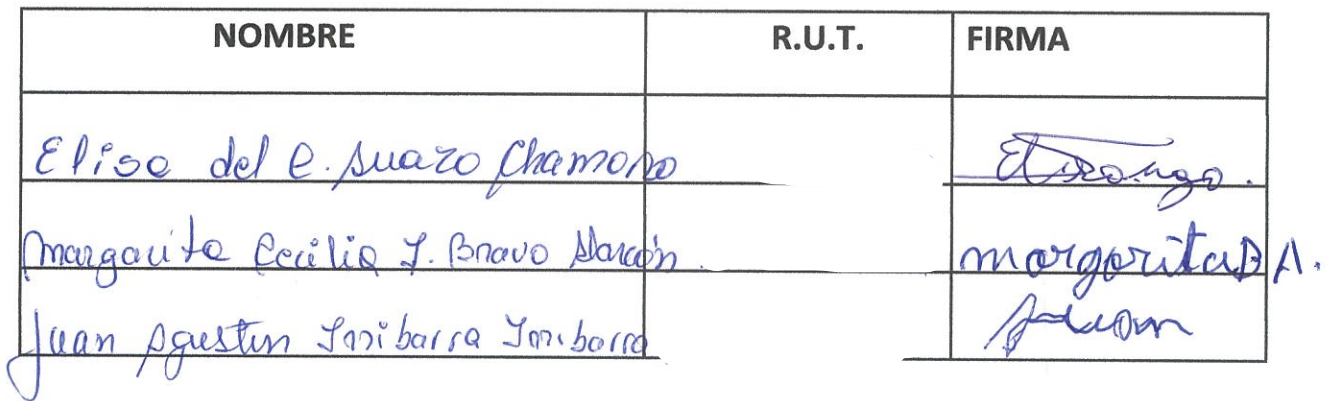 NOMBRE R.U.T. FIRMA
Elisa del C. Suazo Chamorro
Margarita Cecilia I. Bravo Alarcón. margaritaB A.
Juan Agustin Inribarra Inribarra Juan